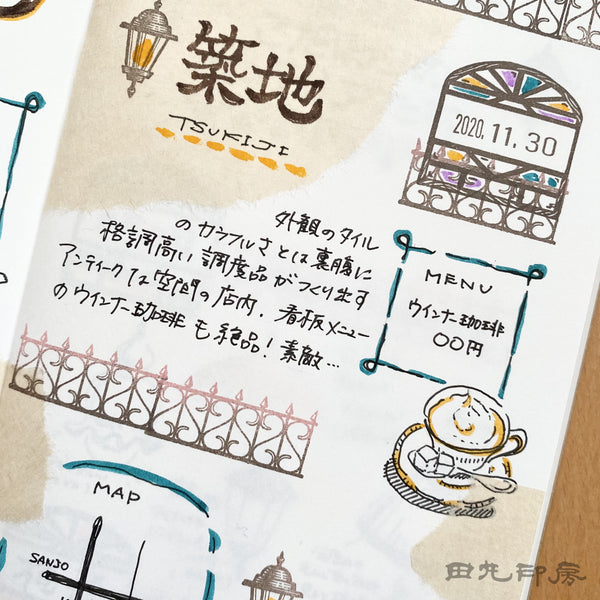 築地
TSUKIJI
2020.11.30
外観のタイル
のカラフルさとは裏腹に
格調高い調度品がつくり出す
アンティークな空間の店内。看板メニュー
のウインナー珈琲も絶品!素敵…
MENU
ウインナー珈琲
〇〇円
MAP
SANJO